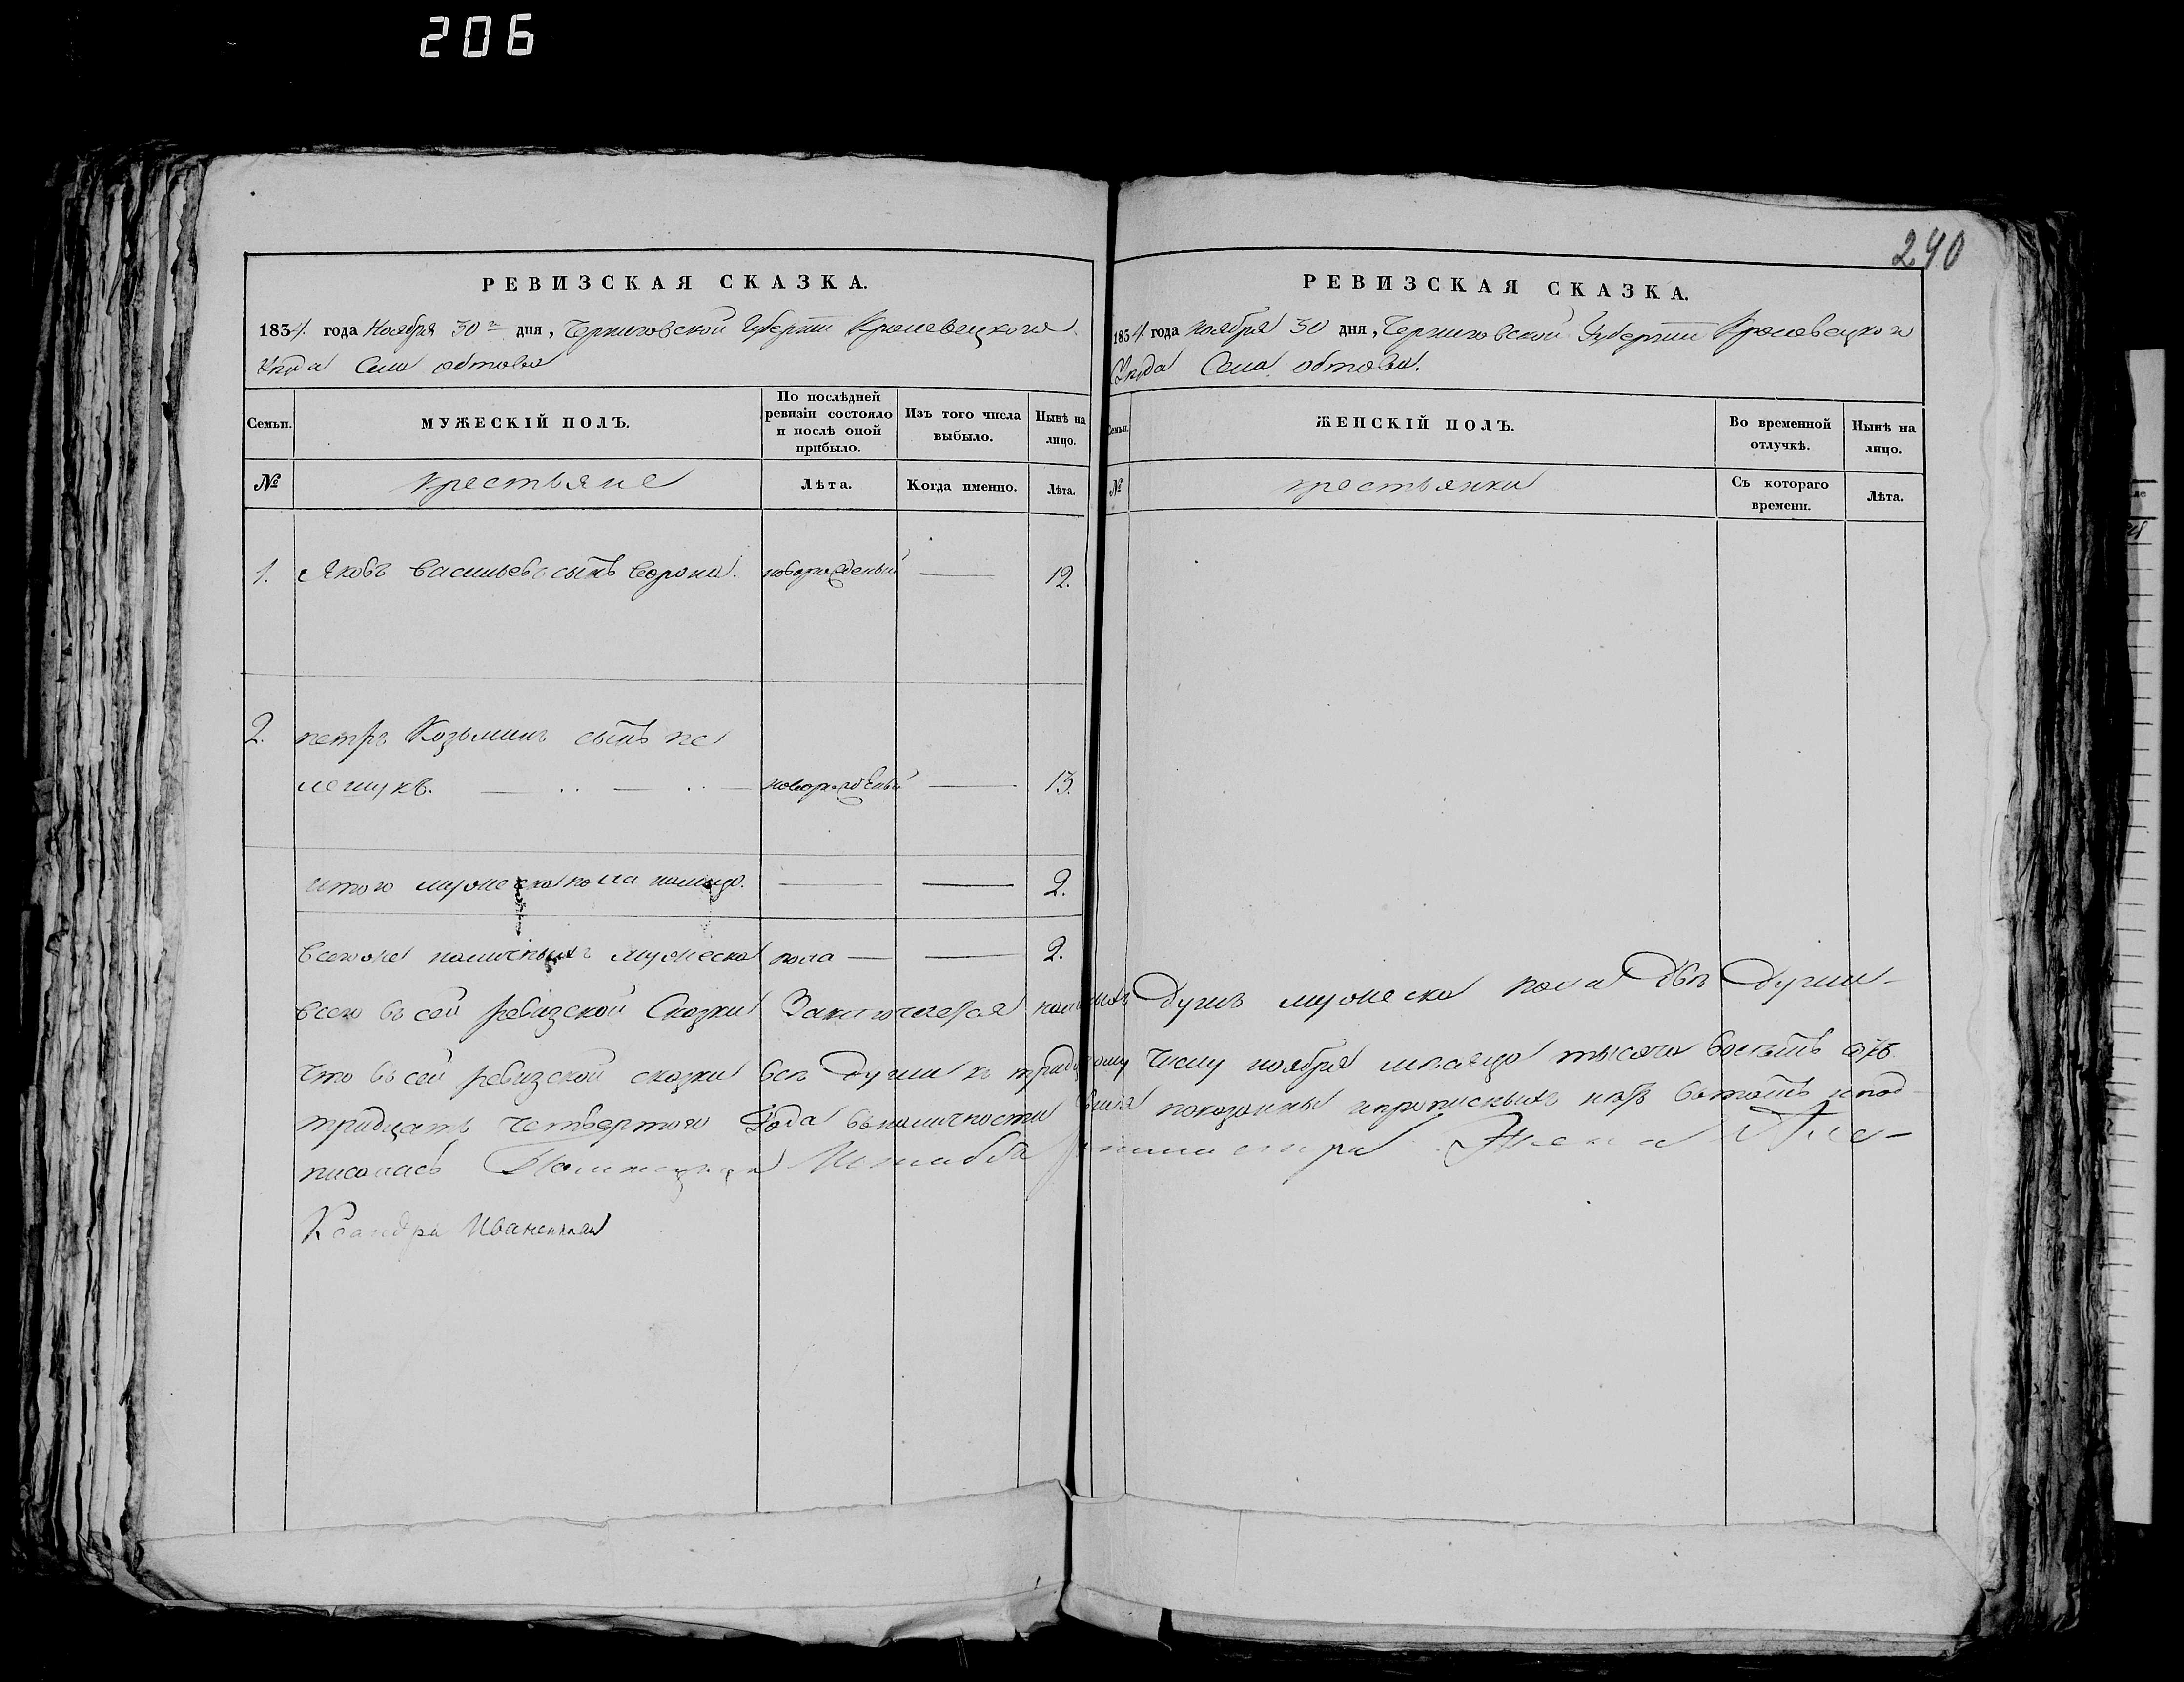 206
240
РЕВИЗСКАЯ СКАЗКА.
1834. года Ноября 30го дня, Черниговской Губернiи Кролевецкого
Уезда Села обтова
Семьи. МУЖЕСКIЙ ПОЛЪ. По послѣдней ревизiи состояло и послѣ оной прибыло. Изъ того числа выбыло. Нынѣ на лицо.
№ крестьяне Лѣта. Когда именно. Лѣта.
1. Яковъ Васильевъ сынъ Сорока. новорожденый — 12.
2. петръ Козьминъ сынъ пе
лешукъ. новорожденый — 13.
итого мужеска пола налицо. — — 2.
Всегоже наличныхъ мужеска пола — — 2.
РЕВИЗСКАЯ СКАЗКА.
1834 года ноября 30 дня, Черниговской Губернiи Кролевецкого
Уезда Села обтова.
Семьи. ЖЕНСКIЙ ПОЛЪ. Во временной отлучкѣ. Нынѣ на лицо.
№ крестьянки Съ котораго времени. Лѣта.
всего въ сей ревизской Сказки Заключается наличныхъ душъ мужеска пола двѣ души
что въ сей ревизской сказки всѣ души къ тридцатому числу ноября месяца тысяча восемъ сотъ
тридцать четвертого Года въ наличности показанны ипрописныхъ нѣтъ вътомъ ипод
писалась Помещица Але
ксандра Иваненкова